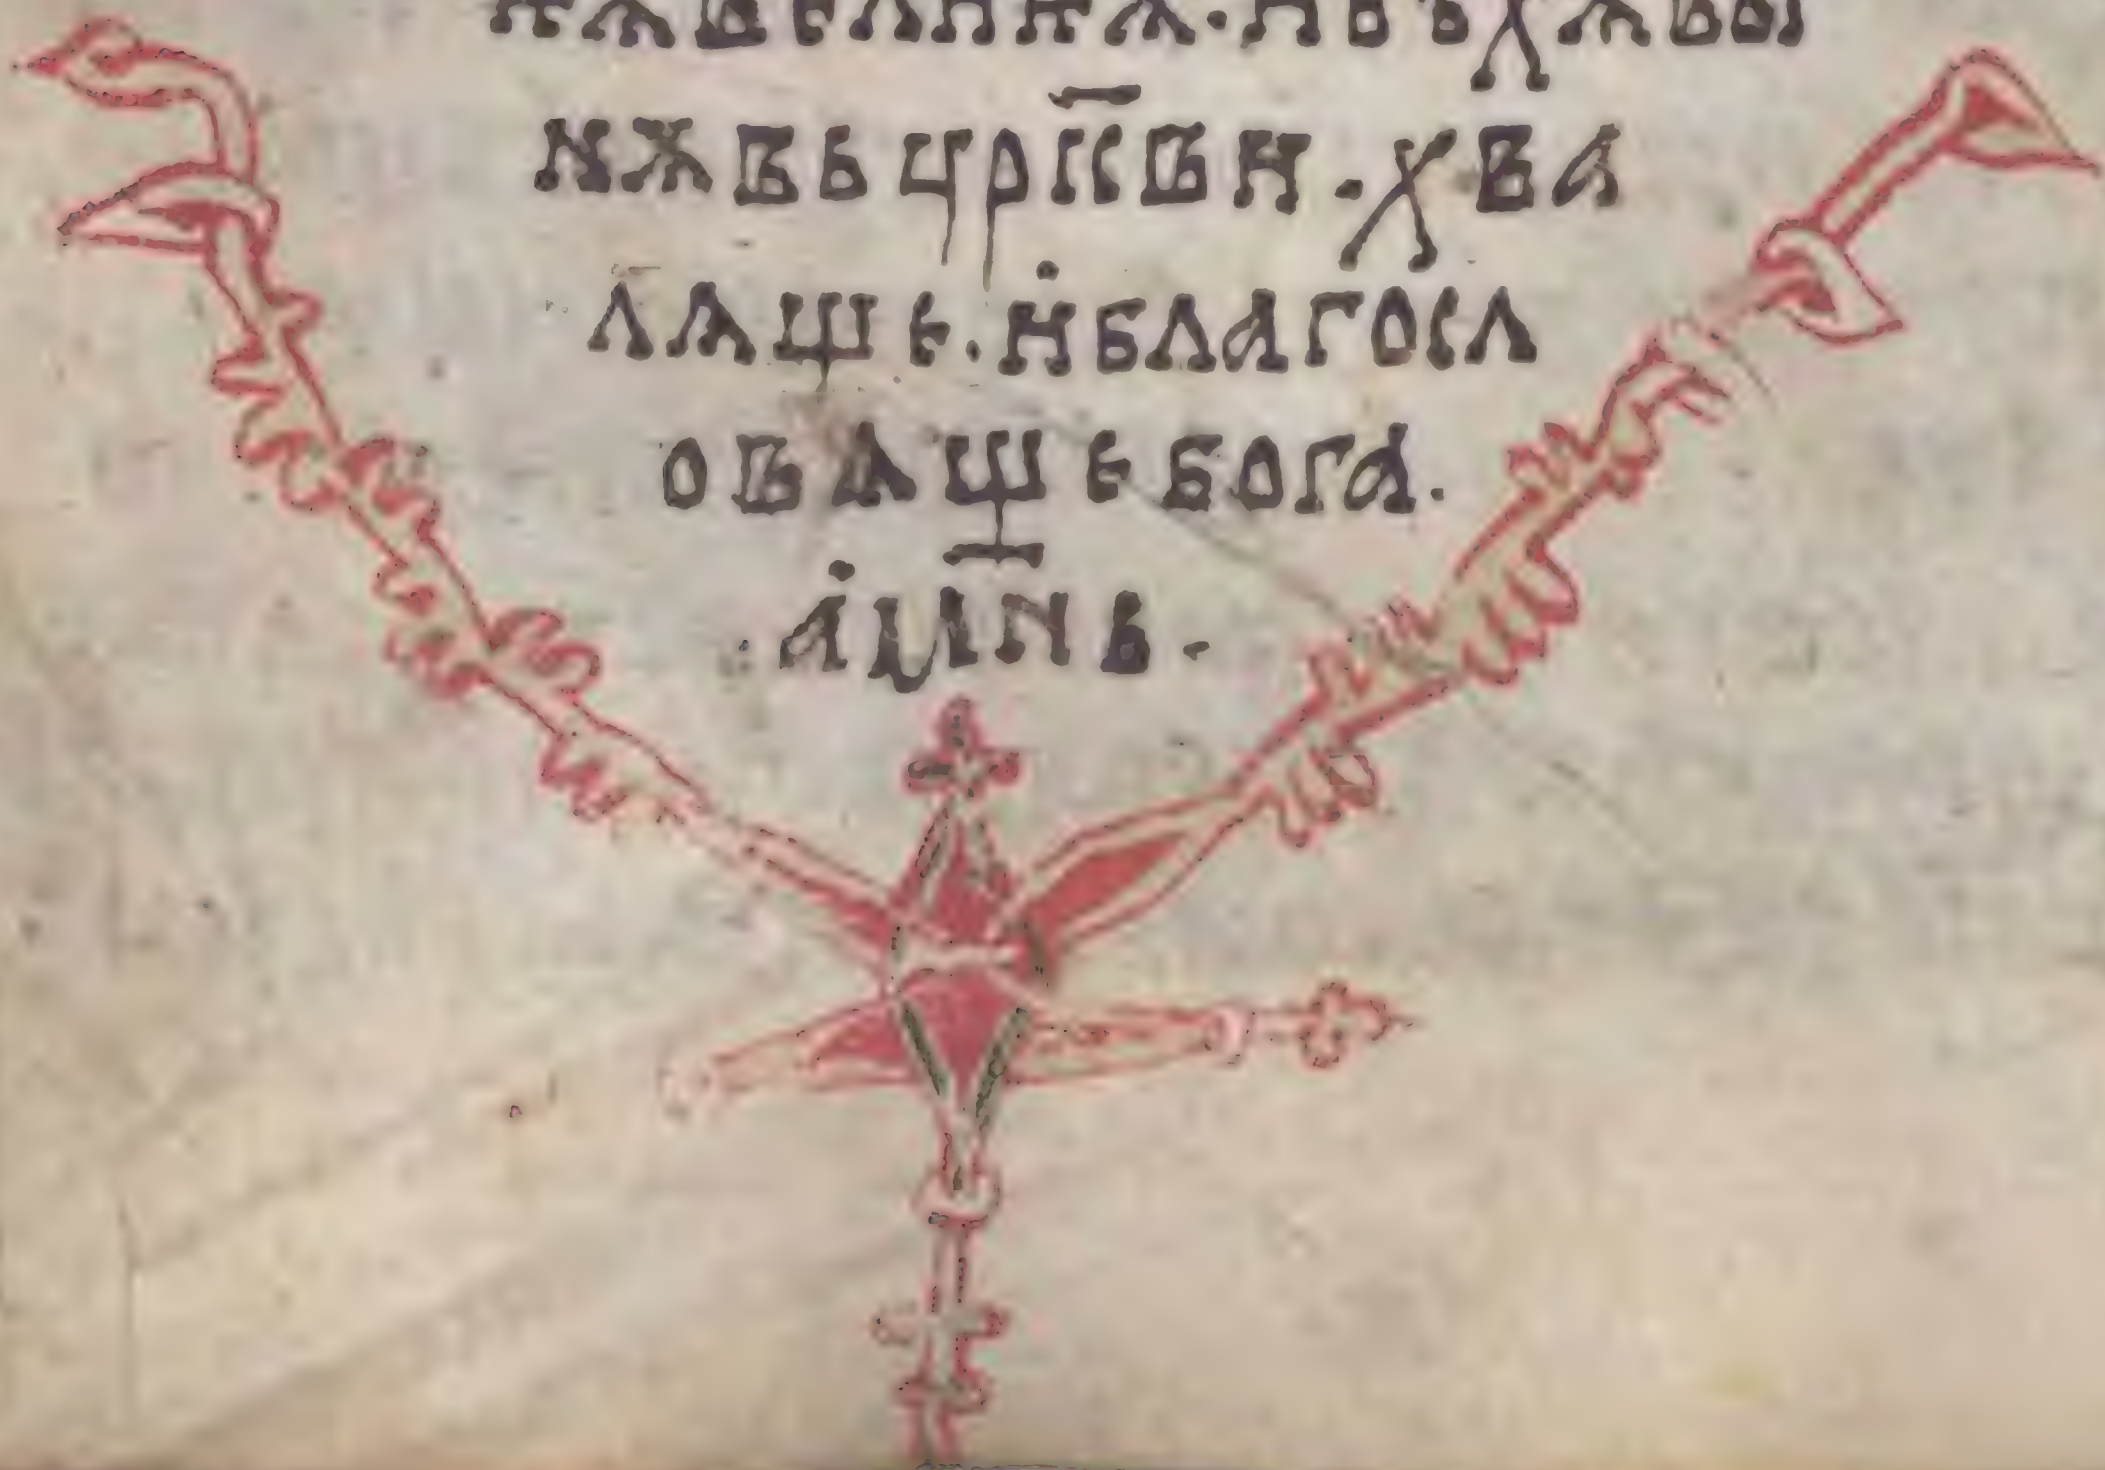 нѫвелиꙗ·нбѣхѫвы
нѫвьцр҃квн·хва
лѧще·нблагосл
овѧщебога·
·ам҃нь·